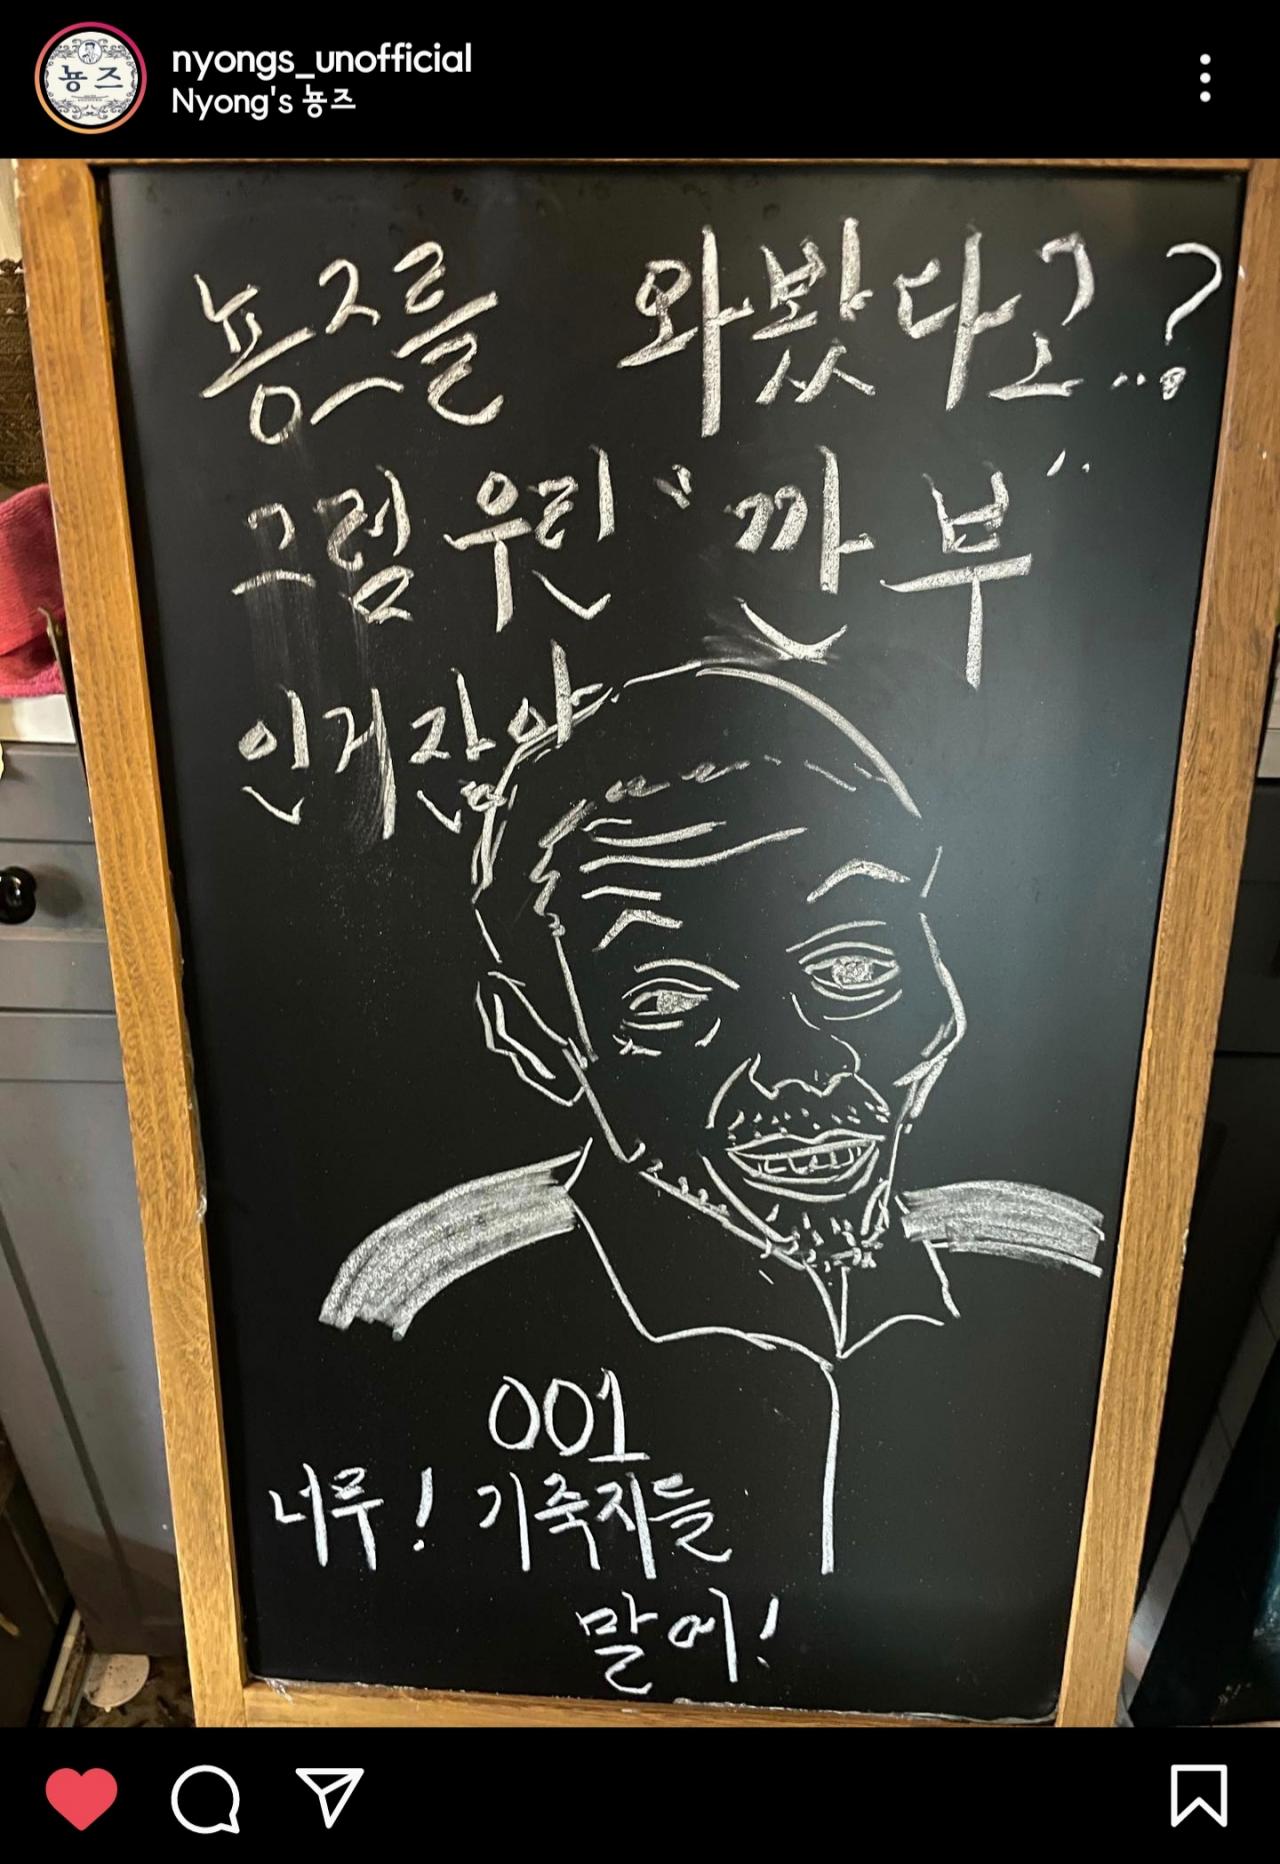 nyongs_unofficial
Nyong's 뇽즈
뇽즈
뇽즈를 와봤다고..?
그럼 우린 "깐부"
인거잖아
001
너무! 기죽지들
말어!